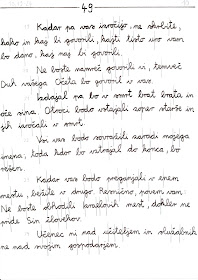 49
Kadar pa vas izročijo, ne skrbite,
kako in kaj bi govorili, kajti tisto uro vam
bo dano, kaj naj bi govorili.
Ne boste namreč govorili vi, temveč
Duh vašega Očeta bo govoril v vas.
Izdajal pa bo v smrt brat brata in
oče sina. Otroci bodo vstajali zoper starše in
jih izročali v smrt.
Vsi vas bodo sovražili zaradi mojega
imena; toda kdor bo vztrajal do konca, bo
rešen.
Kadar vas bodo preganjali v enem
mestu, bežite v drugo. Resnično, povem vam:
Ne boste obhodili Izraelovih mest, dokler ne
pride Sin človekov.
Učenec ni nad učiteljem in služabnik
ne nad svojim gospodarjem.